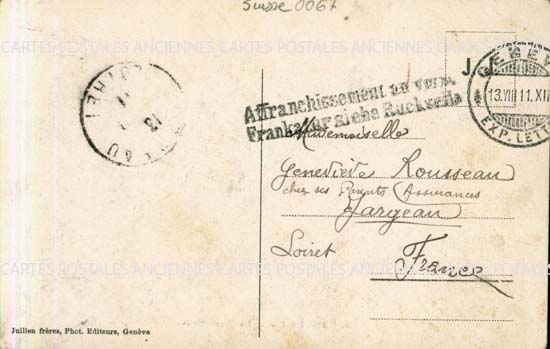 Suisse 0067
CARTES POSTALES ANCIENNES CARTES POSTALES ANCIENNES
J.
GENÈV
13.VIII 11.XI
EXP. LETT
Affranchissement au verso.
Frankatur siehe Rückseite
Mademoiselle
Geneviève Rousseau
chez ses Parents Assurances
Jargeau
Loiret
France
CARTES POSTALES ANCIENNES CARTES POSTALES ANCIENNES
Jullien frères, Phot. Editeurs, Genève